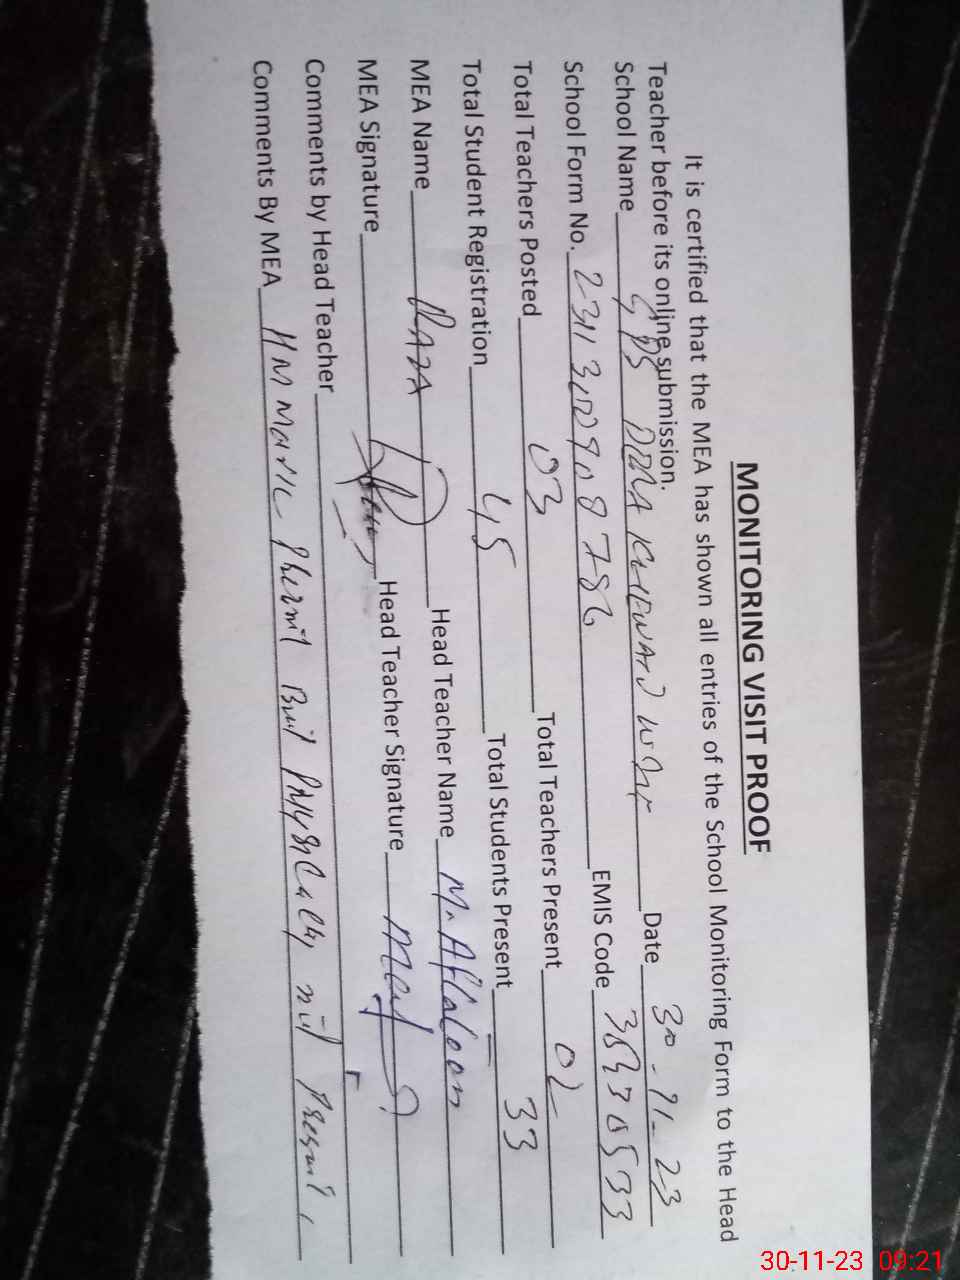 MONITORING VISIT PROOF
It is certified that the MEA has shown all entries of the School Monitoring Form to the Head
Teacher before its online submission.
School Name GPS Date 30-11-23
School Form No. EMIS Code
Total Teachers Posted 03 Total Teachers Present 02
Total Student Registration 45 Total Students Present 33
MEA Name RAZA Head Teacher Name M. Aflatoon
MEA Signature Head Teacher Signature
Comments by Head Teacher
Comments By MEA HM Mark Physically not Present
30-11-23 09:21